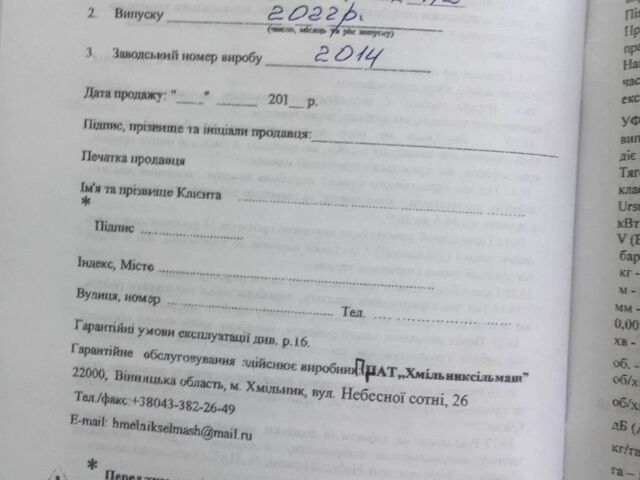 2. Випуску 2022р.
(число, місяць та рік випуску)
3. Заводський номер виробу 2014
Дата продажу: "___" ______ 201__ р.
Підпис, прізвище та ініціали продавця:
Печатка продавця
Ім'я та прізвище Клієнта
*
Підпис
Індекс, Місто
Вулиця, номер Тел.
Гарантійні умови експлуатації див. р.16.
Гарантійне обслуговування здійснює виробник ПрАТ „Хмільниксільмаш"
22000, Вінницька область, м. Хмільник, вул. Небесної сотні, 26
Тел./факс:+38043-382-26-49
E-mail: hmelnikselmash@mail.ru
*
УФ
діє
Тяг
кла
Ursu
кВт
V (В
бар
кг -
м -
мм -
0,00
хв -
об. -
об/х
об/х
дБ (А
кг/га
га –